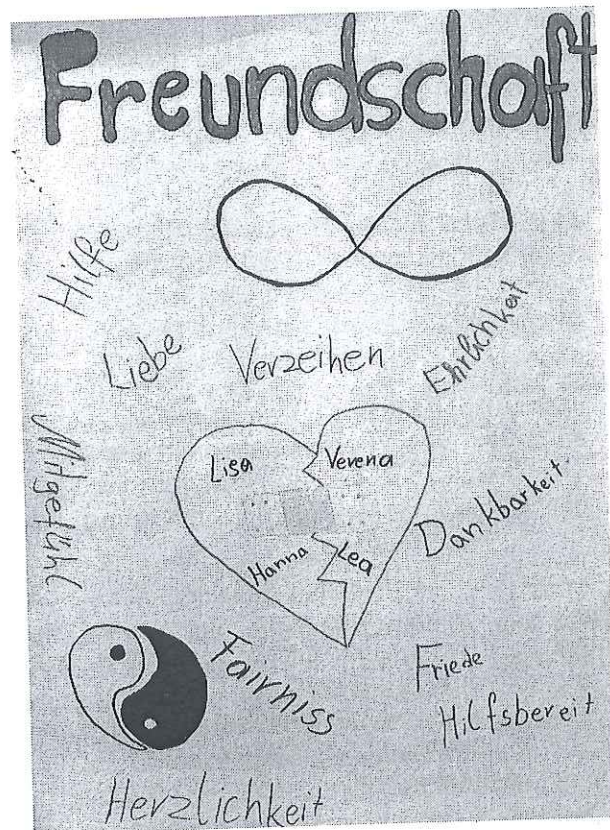 Freundschaft
Hilfe
Liebe
Verzeihen
Ehrlichkeit
Mitgefühl
Lisa
Verena
Hanna
Lea
Dankbarkeit
Fairniss
Friede
Hilfsbereit
Herzlichkeit